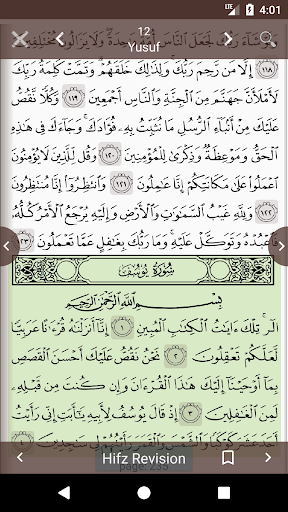 LTE 4:01
12
Yusuf
وَلَوْ شَآءَ رَبُّكَ لَجَعَلَ ٱلنَّاسَ أُمَّةً وَٰحِدَةً وَلَا يَزَالُونَ مُخْتَلِفِينَ
١١٨ إِلَّا مَن رَّحِمَ رَبُّكَ وَلِذَٰلِكَ خَلَقَهُمْ وَتَمَّتْ كَلِمَةُ رَبِّكَ
لَأَمْلَأَنَّ جَهَنَّمَ مِنَ ٱلْجِنَّةِ وَٱلنَّاسِ أَجْمَعِينَ ١١٩ وَكُلًّا نَّقُصُّ
عَلَيْكَ مِنْ أَنۢبَآءِ ٱلرُّسُلِ مَا نُثَبِّتُ بِهِۦ فُؤَادَكَ وَجَآءَكَ فِى هَٰذِهِ
ٱلْحَقُّ وَمَوْعِظَةٌ وَذِكْرَىٰ لِلْمُؤْمِنِينَ ١٢٠ وَقُل لِّلَّذِينَ لَا يُؤْمِنُونَ
ٱعْمَلُوا۟ عَلَىٰ مَكَانَتِكُمْ إِنَّا عَٰمِلُونَ ١٢١ وَٱنتَظِرُوٓا۟ إِنَّا مُنتَظِرُونَ
١٢٢ وَلِلَّهِ غَيْبُ ٱلسَّمَٰوَٰتِ وَٱلْأَرْضِ وَإِلَيْهِ يُرْجَعُ ٱلْأَمْرُ كُلُّهُۥ
فَٱعْبُدْهُ وَتَوَكَّلْ عَلَيْهِ وَمَا رَبُّكَ بِغَٰفِلٍ عَمَّا تَعْمَلُونَ ١٢٣
سُورَةُ يُوسُفَ
بِسْمِ ٱللَّهِ ٱلرَّحْمَٰنِ ٱلرَّحِيمِ
الٓر تِلْكَ ءَايَٰتُ ٱلْكِتَٰبِ ٱلْمُبِينِ ١ إِنَّآ أَنزَلْنَٰهُ قُرْءَٰنًا عَرَبِيًّا
لَّعَلَّكُمْ تَعْقِلُونَ ٢ نَحْنُ نَقُصُّ عَلَيْكَ أَحْسَنَ ٱلْقَصَصِ
بِمَآ أَوْحَيْنَآ إِلَيْكَ هَٰذَا ٱلْقُرْءَانَ وَإِن كُنتَ مِن قَبْلِهِۦ
لَمِنَ ٱلْغَٰفِلِينَ ٣ إِذْ قَالَ يُوسُفُ لِأَبِيهِ يَٰٓأَبَتِ إِنِّى رَأَيْتُ
أَحَدَ عَشَرَ كَوْكَبًا وَٱلشَّمْسَ وَٱلْقَمَرَ رَأَيْتُهُمْ لِى سَٰجِدِينَ ٤
Hifz Revision
page: 235